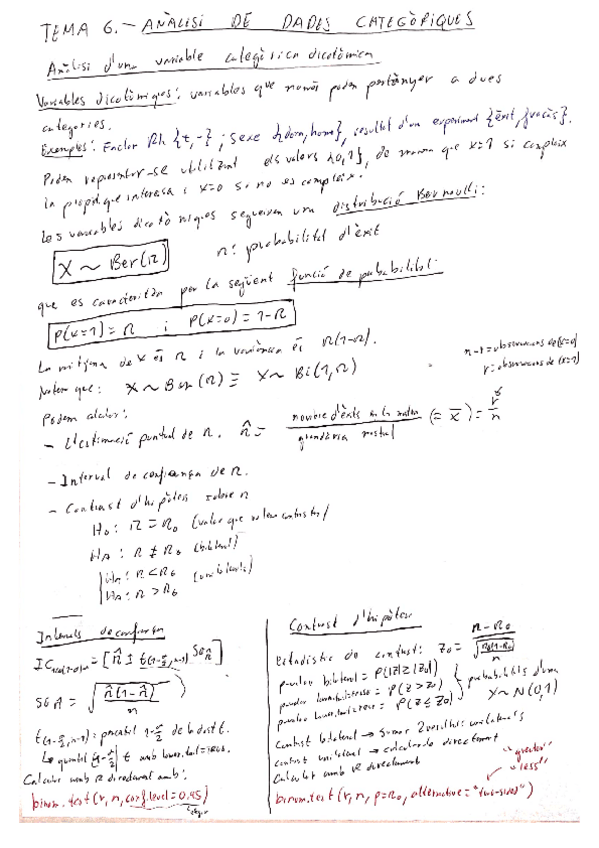 TEMA 6.- ANÀLISI DE DADES CATEGÒRIQUES
Anàlisi d'una variable categòrica dicotòmica
Variables dicotòmiques: variables que només poden pertànyer a dues
categories.
Exemples: Factor Rh {+,-}; sexe {dona, home}, resultat d'un experiment {èxit, fracàs}.
Poden representar-se utilitzant els valors {0,1}, de manera que x=1 si compleix
la propietat que interessa i x=0 si no es compleix.
Les variables dicotòmiques segueixen una distribució Bernoulli:
X ~ Ber(π) π: probabilitat d'èxit
que es caracteritza per la següent funció de probabilitat:
P(x=1) = π i P(x=0) = 1-π
La mitjana de X és π i la variància és π(1-π).
Notem que: X ~ Ber(π) ≡ X ~ Bi(1,π)
n-r = observacions de (x=0)
r: observacions de (x=1)
Podem calcular:
- L'estimació puntual de π. π̂ = nombre d'èxits en la mostra / grandària mostral (= x̄) = r/n
- Interval de confiança de π.
- Contrast d'hipòtesis sobre π
H₀: π = π₀ (valor que volem contrastar)
Hₐ: π ≠ π₀ (bilateral)
Hₐ: π < π₀
Hₐ: π > π₀ (unilaterals)
Intervals de confiança
SEπ̂ = √(π̂(1-π̂)/n)
Calcular amb R directament amb:
binom.test(r, n, conf.level=0.95)
Contrast d'hipòtesis
Estadístic de contrast: z₀ =
p-valor bilateral = P(|Z| ≥ |z₀|)
probabilitats d'una
X ~ N(0,1)
Contrast bilateral → sumar 2 resultats unilaterals
Contrast unilateral → calcular-lo directament
Calcular amb R directament
"greater"
"less"
binom.test(r, n, p=π₀, alternative="two-sided")